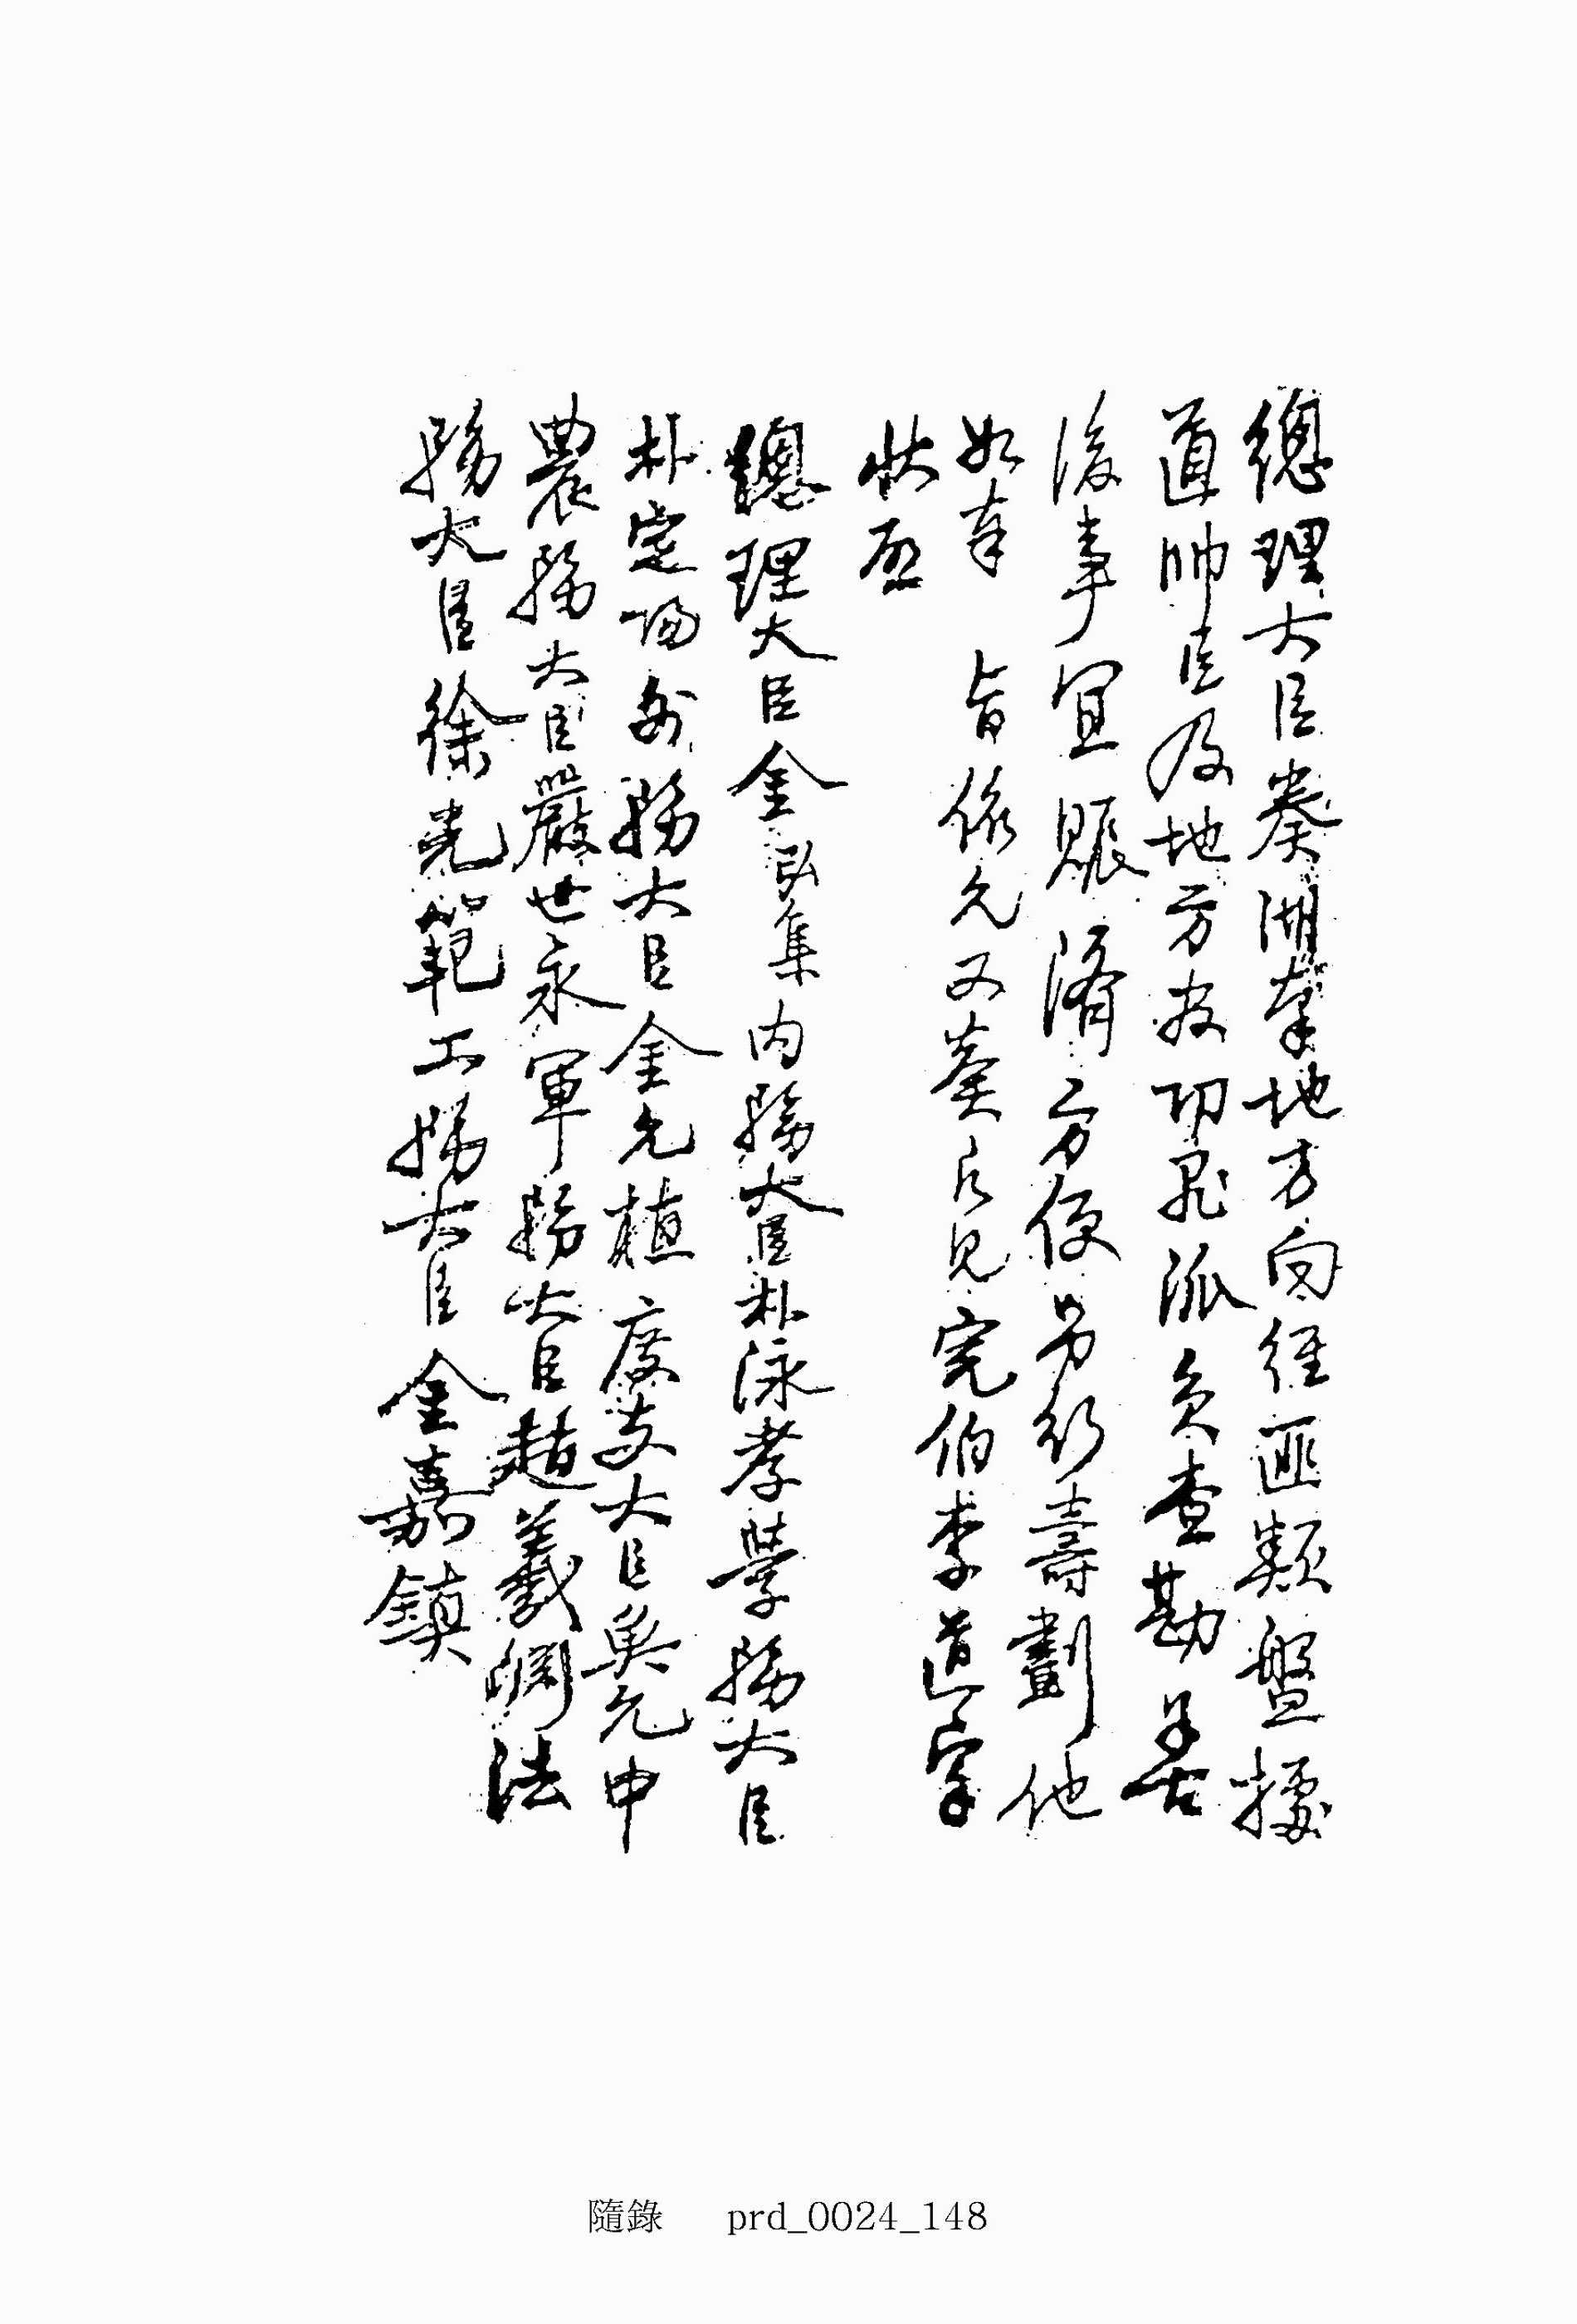 總理大臣奏湖南地方向經匪類盤據
道帥臣及地方故切飛派員查勘善
後事宜賑濟方便另行籌劃他
如奉 旨依允又奏即見完伯李道宰
狀啓
總理大臣金弘集內務大臣朴泳孝學務大臣
朴定陽外務大臣金允植度支大臣魚允中
農務大臣嚴世永軍務大臣趙羲淵法
務大臣徐光範工務大臣金嘉鎭
隨錄 prd_0024_148